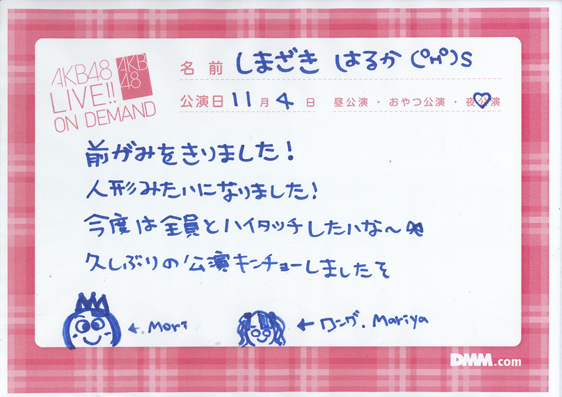 AKB48
LIVE!!
ON DEMAND
AKB
48
名前 しまざき はるか
公演日 11月4日 昼公演・おやつ公演・夜公演
前がみをきりました!
人形みたいになりました!
今度は全員とハイタッチしたいな〜
久しぶりの公演キンチョーしましたそ
← Mori
← ロング。Mariya
DMM.com